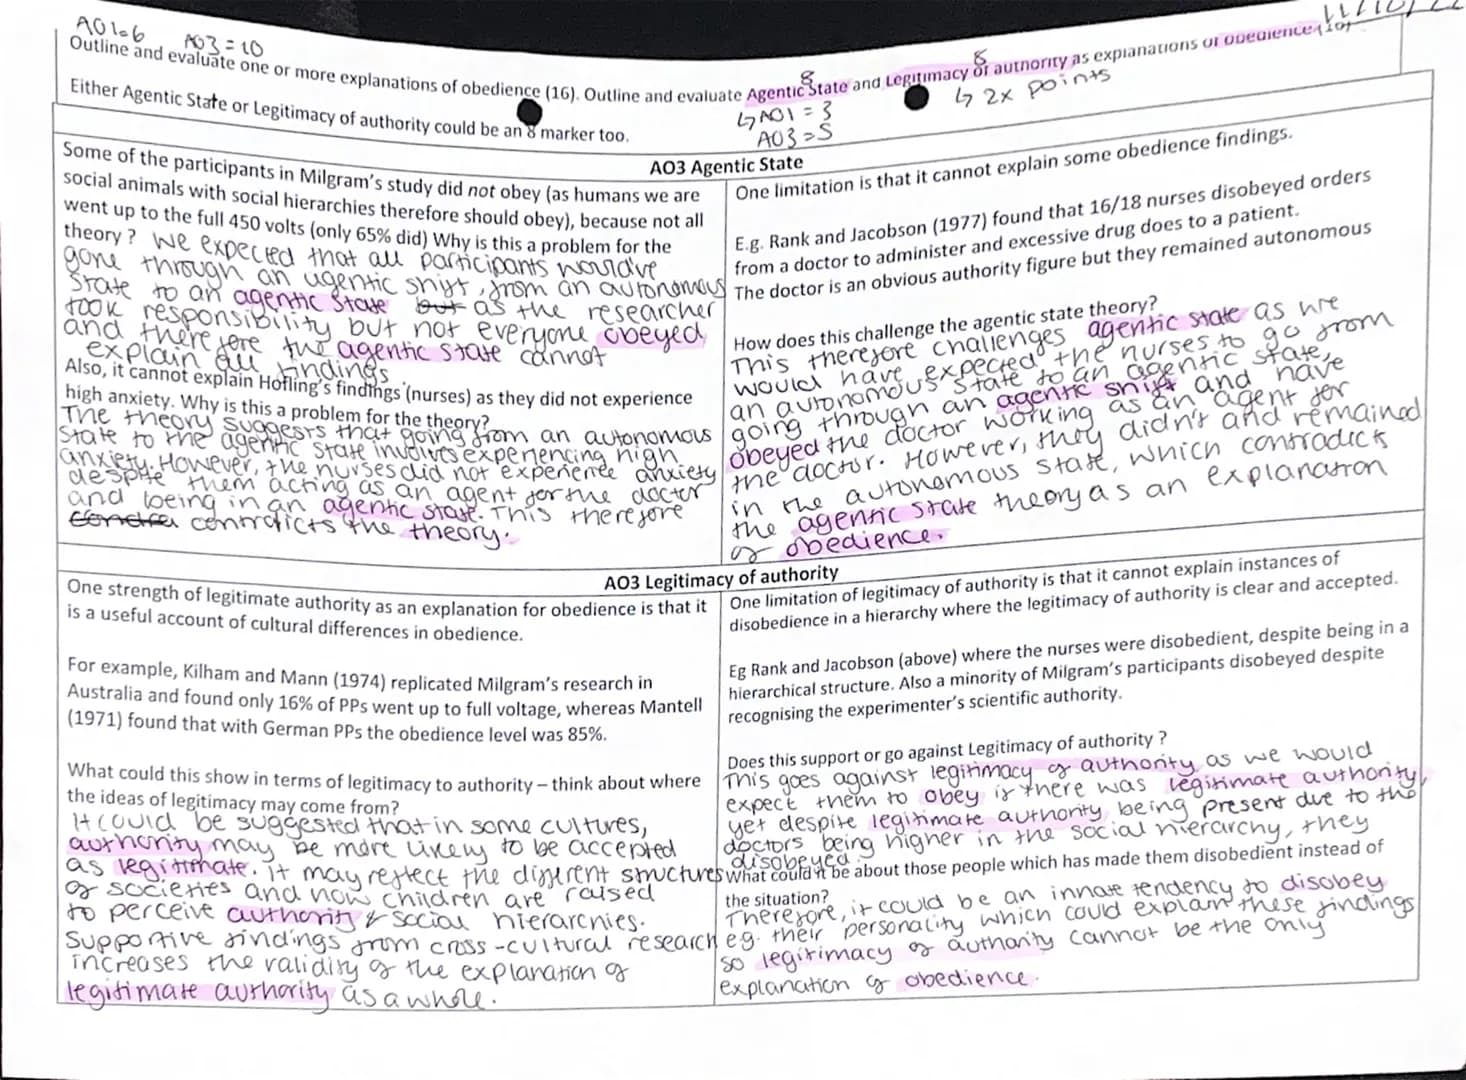 AO1=6 AO3=10
11/10/22
Outline and evaluate one or more explanations of obedience (16). Outline and evaluate Agentic State and Legitimacy of authority as explanations of obedience (16)
8 8
↳ AO1 = 3
AO3 = 5
↳ 2x points
Either Agentic State or Legitimacy of authority could be an 8 marker too.
AO3 Agentic State
Some of the participants in Milgram's study did not obey (as humans we are
social animals with social hierarchies therefore should obey), because not all
went up to the full 450 volts (only 65% did) Why is this a problem for the
theory? We expected that all participants would've
gone through an agentic shift, from an autonomous
state to an agentic state but as the researcher
took responsibility but not everyone obeyed
and therefore the agentic state cannot
explain all findings.
Also, it cannot explain Hofling's findings (nurses) as they did not experience
high anxiety. Why is this a problem for the theory?
The theory suggests that going from an autonomous
state to the agentic state involves experiencing high
anxiety. However, the nurses did not experience anxiety
despite them acting as an agent for the doctor
and being in an agentic state. This therefore
contradicts the theory.
One limitation is that it cannot explain some obedience findings.
E.g. Rank and Jacobson (1977) found that 16/18 nurses disobeyed orders
from a doctor to administer and excessive drug does to a patient.
The doctor is an obvious authority figure but they remained autonomous
How does this challenge the agentic state theory?
This therefore challenges agentic state as we
would have expected the nurses to go from
an autonomous state to an agentic state,
going through an agentic shift and have
obeyed the doctor working as an agent for
the doctor. However, they didn't and remained
in the autonomous state, which contradicts
the agentic state theory as an explanation
of obedience.
AO3 Legitimacy of authority
One strength of legitimate authority as an explanation for obedience is that it
is a useful account of cultural differences in obedience.
For example, Kilham and Mann (1974) replicated Milgram's research in
Australia and found only 16% of PPs went up to full voltage, whereas Mantell
(1971) found that with German PPs the obedience level was 85%.
What could this show in terms of legitimacy to authority – think about where
the ideas of legitimacy may come from?
It could be suggested that in some cultures,
authority may be more likely to be accepted
as legitimate. It may reflect the different structures
of societies and how children are raised
to perceive authority & social hierarchies.
Supportive findings from cross-cultural research
increases the validity of the explanation of
legitimate authority as a whole.
One limitation of legitimacy of authority is that it cannot explain instances of
disobedience in a hierarchy where the legitimacy of authority is clear and accepted.
Eg Rank and Jacobson (above) where the nurses were disobedient, despite being in a
hierarchical structure. Also a minority of Milgram's participants disobeyed despite
recognising the experimenter's scientific authority.
Does this support or go against Legitimacy of authority ?
This goes against legitimacy of authority as we would
expect them to obey if there was legitimate authority,
yet despite legitimate authority being present due to the
doctors being higher in the social hierarchy, they
disobeyed.
What could it be about those people which has made them disobedient instead of
the situation?
Therefore, it could be an innate tendency to disobey
eg. their personality which could explain these findings
so legitimacy of authority cannot be the only
explanation of obedience.